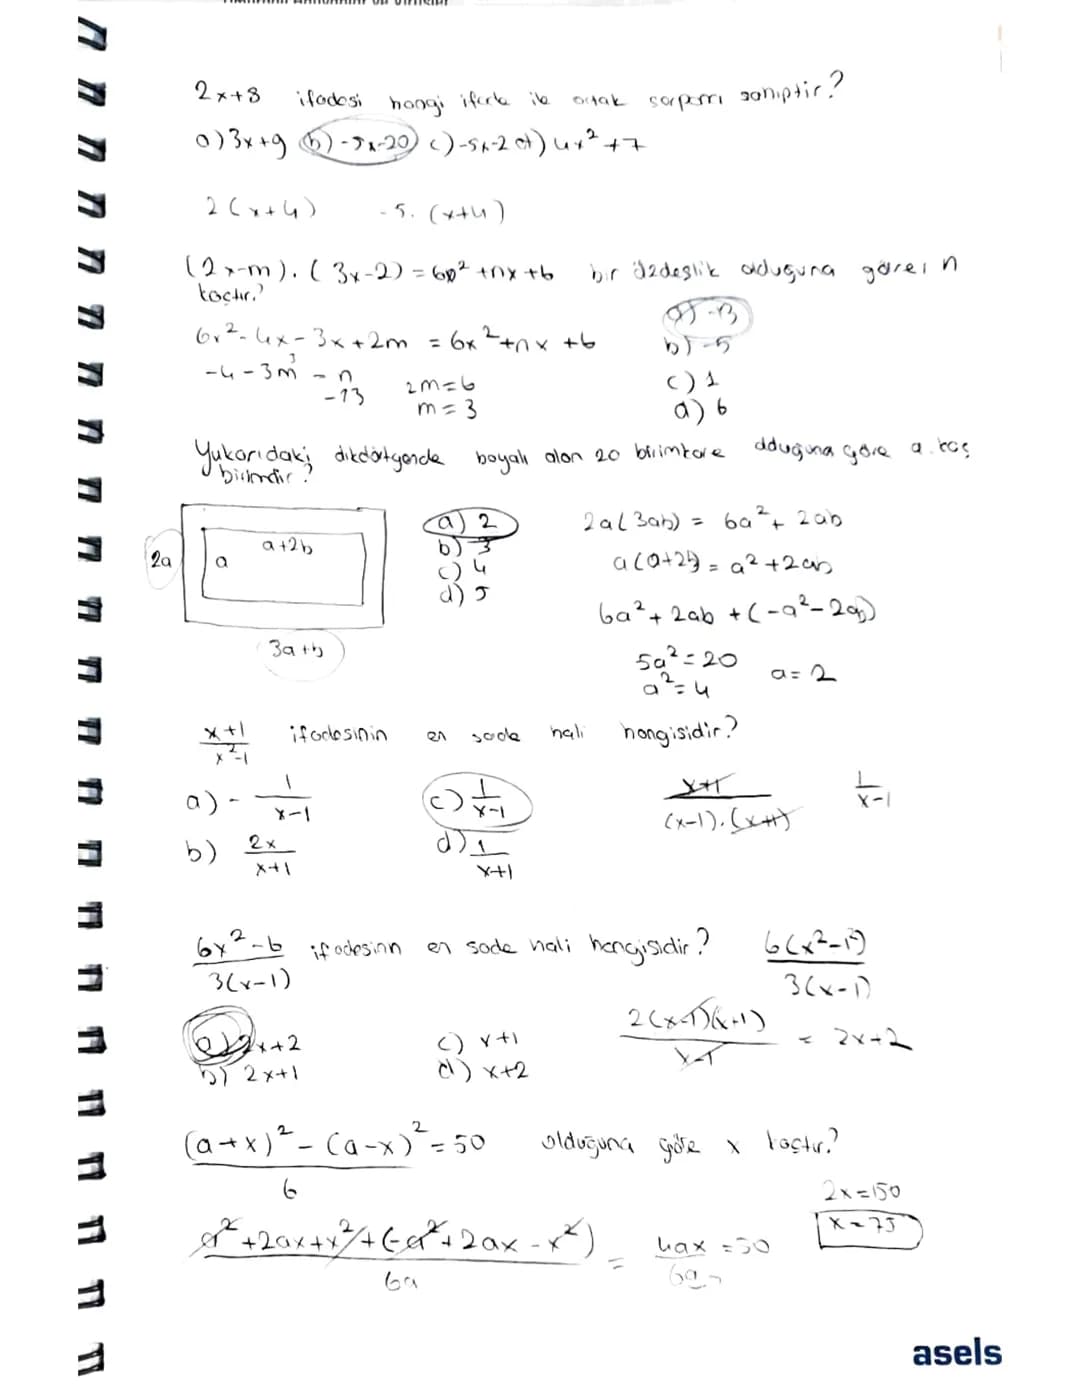 2x+8 ifadesi hangi ifade ile ortak çarpanı sahiptir?
a) 3x+9 b) -5x-20 c) -5x-2 d) 4x²+7
2(x+4) -5.(x+4)
(2x-m).(3x-2) = 6x²+nx+6 bir özdeşlik olduğuna göre, n
kaçtır?
6x²-4x-3x+2m = 6x²+nx+6
-4-3m = n
3
-13
2m=6
m=3
a) -13
b) -5
c) 1
d) 6
Yukarıdaki dikdörtgende boyalı alan 20 birimkare olduğuna göre a kaç
birimdir?
2a
a
a+2b
3a+b
a) 2
b) 3
c) 4
d) 5
2a(3ab) = 6a²+2ab
a(a+2b) = a²+2ab
6a²+2ab+(-a²-2ab)
5a²=20
a²=4
a=2
x+1
x²-1
ifadesinin en sade hali hangisidir?
a) - 1
x-1
b) 2x
x+1
c) 1
x-1
d) 1
x+1
x+1
(x-1).(x+1)
1
x-1
6x²-6 ifadesinn en sade hali hangisidir?
3(x-1)
6(x²-1²)
3(x-1)
a) 2x+2
b) 2x+1
c) x+1
d) x+2
2(x-1)(x+1) = 2x+2
x-1
(a+x)²-(a-x)²=50 olduğuna göre x kaçtır?
6
a²+2ax+x²+(-a²+2ax-x²) = 4ax =50
6a
6a
2x=150
x=75
asels